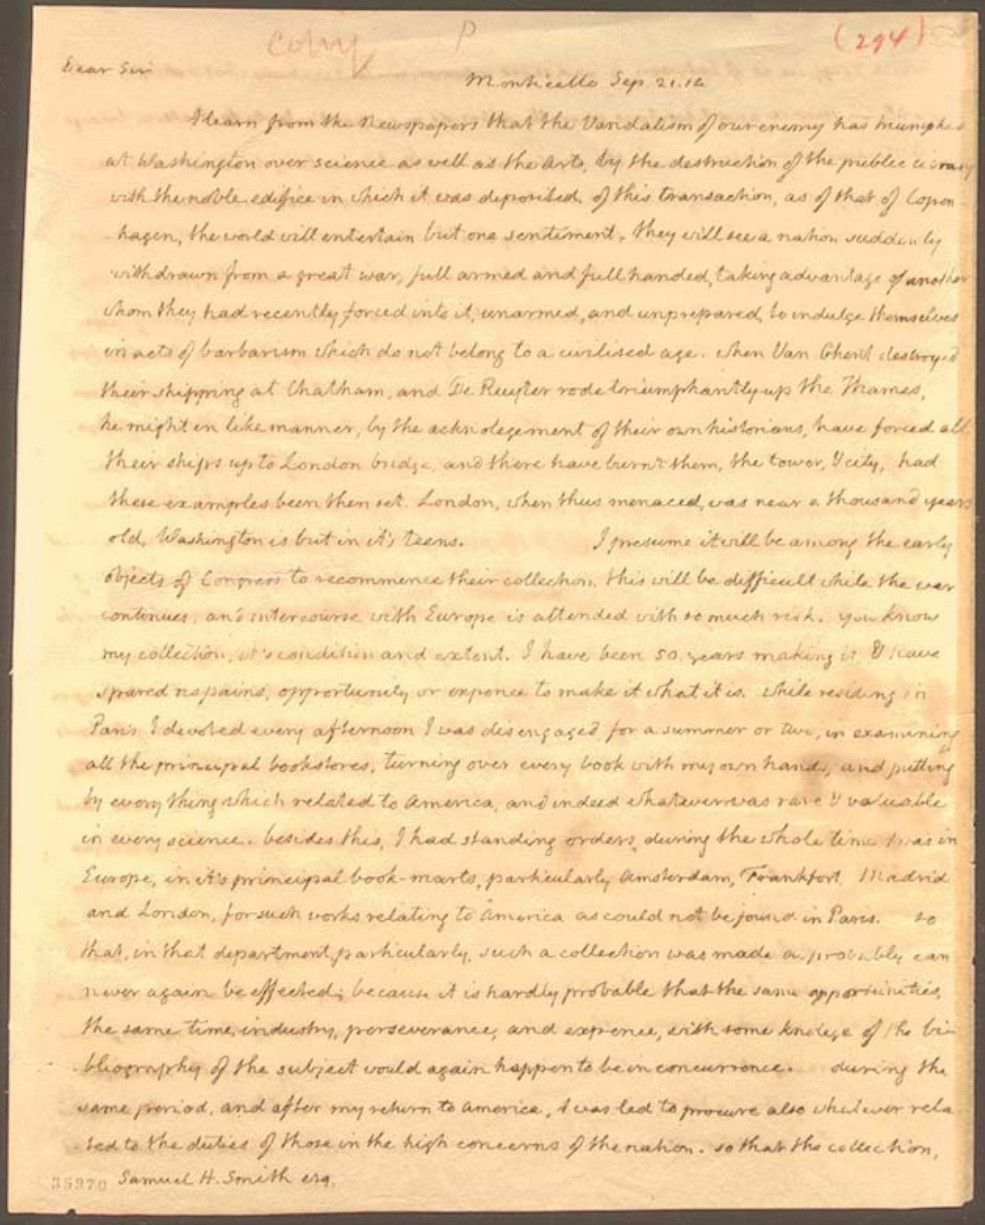 copy P (294)
Dear Sir
Monticello Sep. 21. 14
I learn from the Newspapers that the Vandalism of our enemy has triumphed
at Washington over science as well as the Arts, by the destruction of the public library
with the noble edifice in which it was deposited. of this transaction, as of that of Copen-
hagen, the world will entertain but one sentiment. they will see a nation suddenly
withdrawn from a great war, full armed and full handed, taking advantage of another
whom they had recently forced into it, unarmed, and unprepared, to indulge themselves
in acts of barbarism which do not belong to a civilised age. when Van Ghent destroyed
their shipping at Chatham, and De Ruyter rode triumphantly up the Thames,
he might in like manner, by the acknolegement of their own historians, have forced all
their ships up to London bridge, and there have burnt them, the tower, & city, had
these examples been then set. London, when thus menaced, was near a thousand years
old, Washington is but in it's teens. I presume it will be among the early
objects of Congress to recommence their collection. this will be difficult while the war
continues, and intercourse with Europe is attended with so much risk. you know
my collection, it's condition and extent. I have been 50. years making it, & have
spared no pains, opportunity or expence to make it what it is. while residing in
Paris I devoted every afternoon I was disengaged, for a summer or two, in examining
all the principal bookstores, turning over every book with my own hands, and putting
by every thing which related to America, and indeed whatever was rare & valuable
in every science. besides this, I had standing orders, during the whole time I was in
Europe, in it's principal book-marts, particularly Amsterdam, Frankfort, Madrid
and London, for such works relating to America as could not be found in Paris. so
that, in that department, particularly, such a collection was made as probably can
never again be effected; because it is hardly probable that the same opportunities,
the same time, industry, perseverance, and expence, with some knolege of the bi-
-bliography of the subject would again happen to be in concurrence. during the
same period, and after my return to America, I was led to procure also whatever rela-
-ted to the duties of those in the high concerns of the nation. so that the collection,
35370 Samuel H. Smith esq.